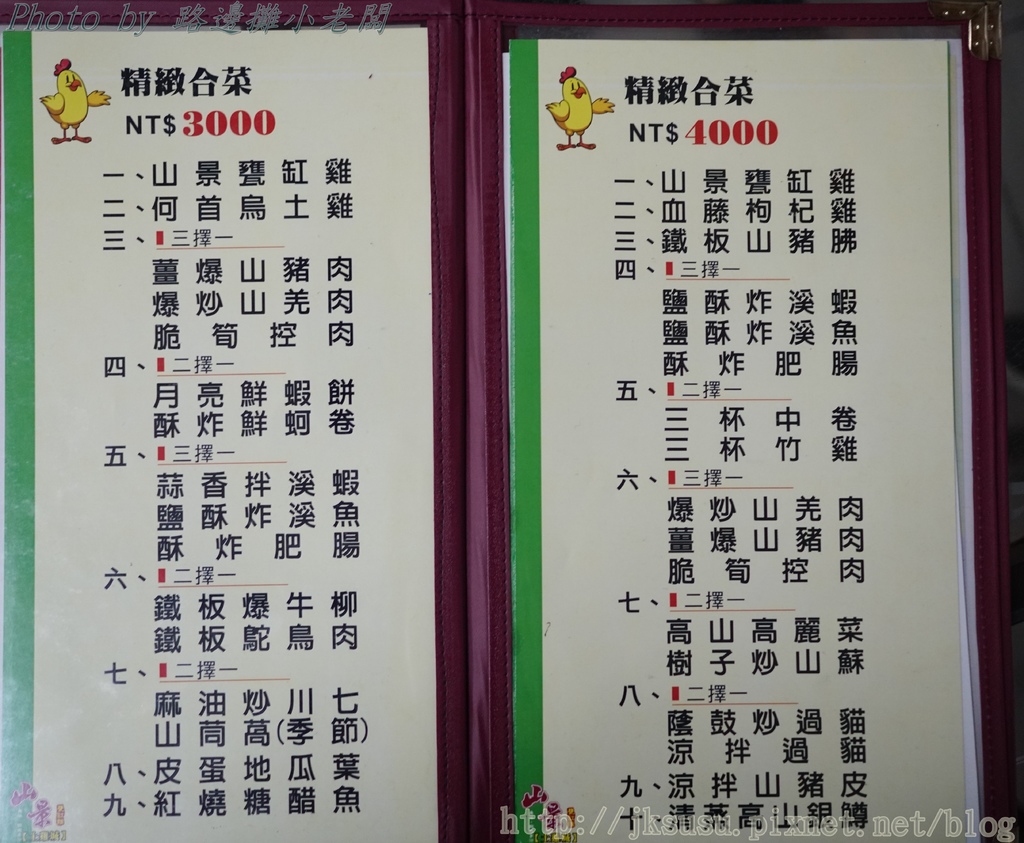 Photo by 路邊攤小老闆
blog
精緻合菜
NT$3000
一、山景甕缸雞
二、何首烏土雞
三、三擇一
薑爆山豬肉
爆炒山羌肉
脆筍控肉
四、二擇一
月亮鮮蝦餅
酥炸鮮蚵卷
五、三擇一
蒜香拌溪蝦
鹽酥炸溪魚
酥炸肥腸
六、二擇一
鐵板爆牛柳
鐵板鴕鳥肉
七、二擇一
麻油炒川七
山茼萵(季節)
八、皮蛋地瓜葉
九、紅燒糖醋魚
山景
精緻合菜
NT$4000
一、山景甕缸雞
二、血藤枸杞雞
三、鐵板山豬胇
四、三擇一
鹽酥炸溪蝦
鹽酥炸溪魚
酥炸肥腸
五、二擇一
三杯中卷
三杯竹雞
六、三擇一
爆炒山羌肉
薑爆山豬肉
脆筍控肉
七、二擇一
高山高麗菜
樹子炒山蘇
八、二擇一
蔭鼓炒過貓
涼拌過貓
九、涼拌山豬皮
十、清蒸高山銀鱒
山景
http://jksusu.pixnet.net/blog